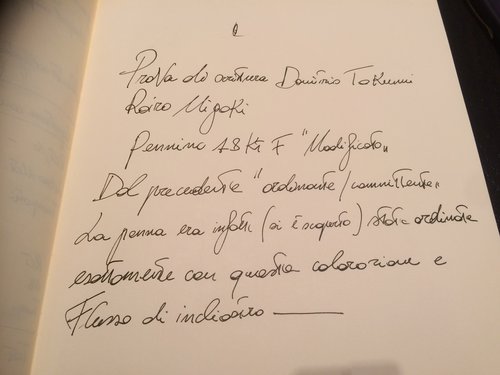 Prova di scrittura Dominio Takumi
Roiro Migaki
Pennino 18 Kt F "Modificato"
Dal precedente "ordinante/committente"
La penna era infatti (si è scoperto) stata ordinata
esattamente con questa colorazione e
Flusso di inchiostro